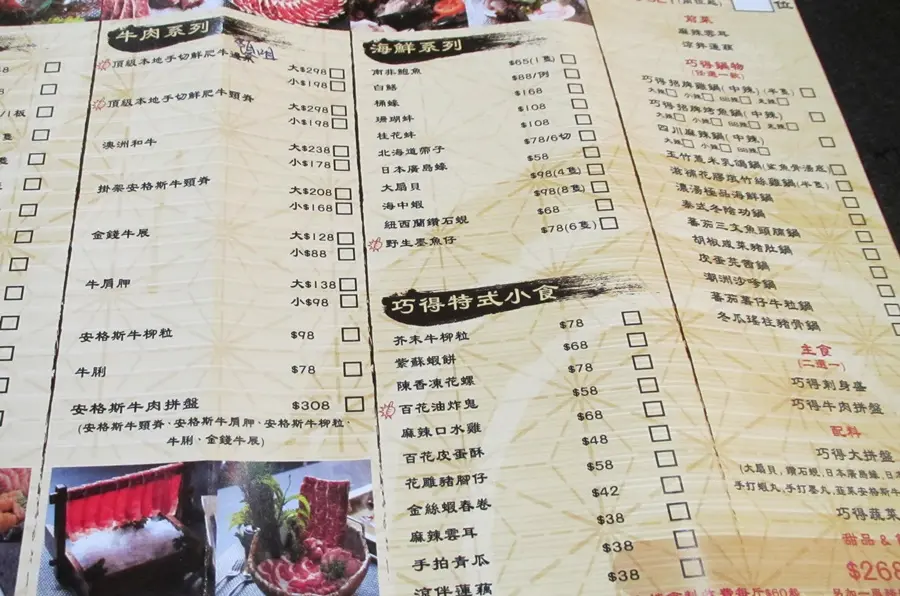 牛肉系列
頂級本地手切鮮肥牛
大$298
小$198
頂級本地手切鮮肥牛頸脊
大$298
小$198
澳洲和牛
大$238
小$178
掛架安格斯牛頸脊
大$208
小$168
金錢牛展
大$128
小$88
牛肩胛
大$138
小$98
安格斯牛柳粒
$98
牛脷
$78
安格斯牛肉拼盤
$308
(安格斯牛頸脊、安格斯牛肩胛、安格斯牛柳粒、
牛脷、金錢牛展)
海鮮系列
南非鮑魚
$65(1隻)
白鱔
$88/例
桶蠔
$168
珊瑚蚌
$108
桂花蚌
$108
北海道帶子
$78/6切
日本廣島蠔
$58
大扇貝
$98(4隻)
海中蝦
$98(8隻)
紐西蘭鑽石蜆
$68
野生墨魚仔
$78(6隻)
巧得特式小食
芥末牛柳粒
$78
紫蘇蝦餅
$68
陳香凍花螺
$78
百花油炸鬼
$58
麻辣口水雞
$68
百花皮蛋酥
$48
花雕豬腳仔
$58
金絲蝦春卷
$42
麻辣雲耳
$38
手拍青瓜
$38
涼伴蓮藕
$38
位
前菜
麻辣雲耳
涼伴蓮藕
巧得鍋物
(任選一款)
巧得招牌雞鍋(中辣)(半隻)
大辣 小辣 BB辣 走辣
巧得招牌烤魚鍋(中辣)
大辣 小辣 BB辣 走辣
四川麻辣鍋(中辣)
大辣 小辣 BB辣
玉竹薏米乳鴿鍋(鯊魚骨湯底)
淮杞花膠燉竹絲雞鍋(半隻)
濃湯極品海鮮鍋
泰式冬陰功鍋
蕃茄三文魚頭腩鍋
胡椒咸菜豬肚鍋
皮蛋芫茜鍋
潮洲沙嗲鍋
蕃茄薯仔牛粒鍋
冬瓜瑤柱豬骨鍋
主食
(二選一)
巧得刺身盛
巧得牛肉拼盤
配料
巧得大拼盤
(大扇貝,鑽石蜆,日本廣島蠔,日本
手打蝦丸,手打墨丸,韮菜安格斯牛
巧得蔬菜
甜品 &
$268